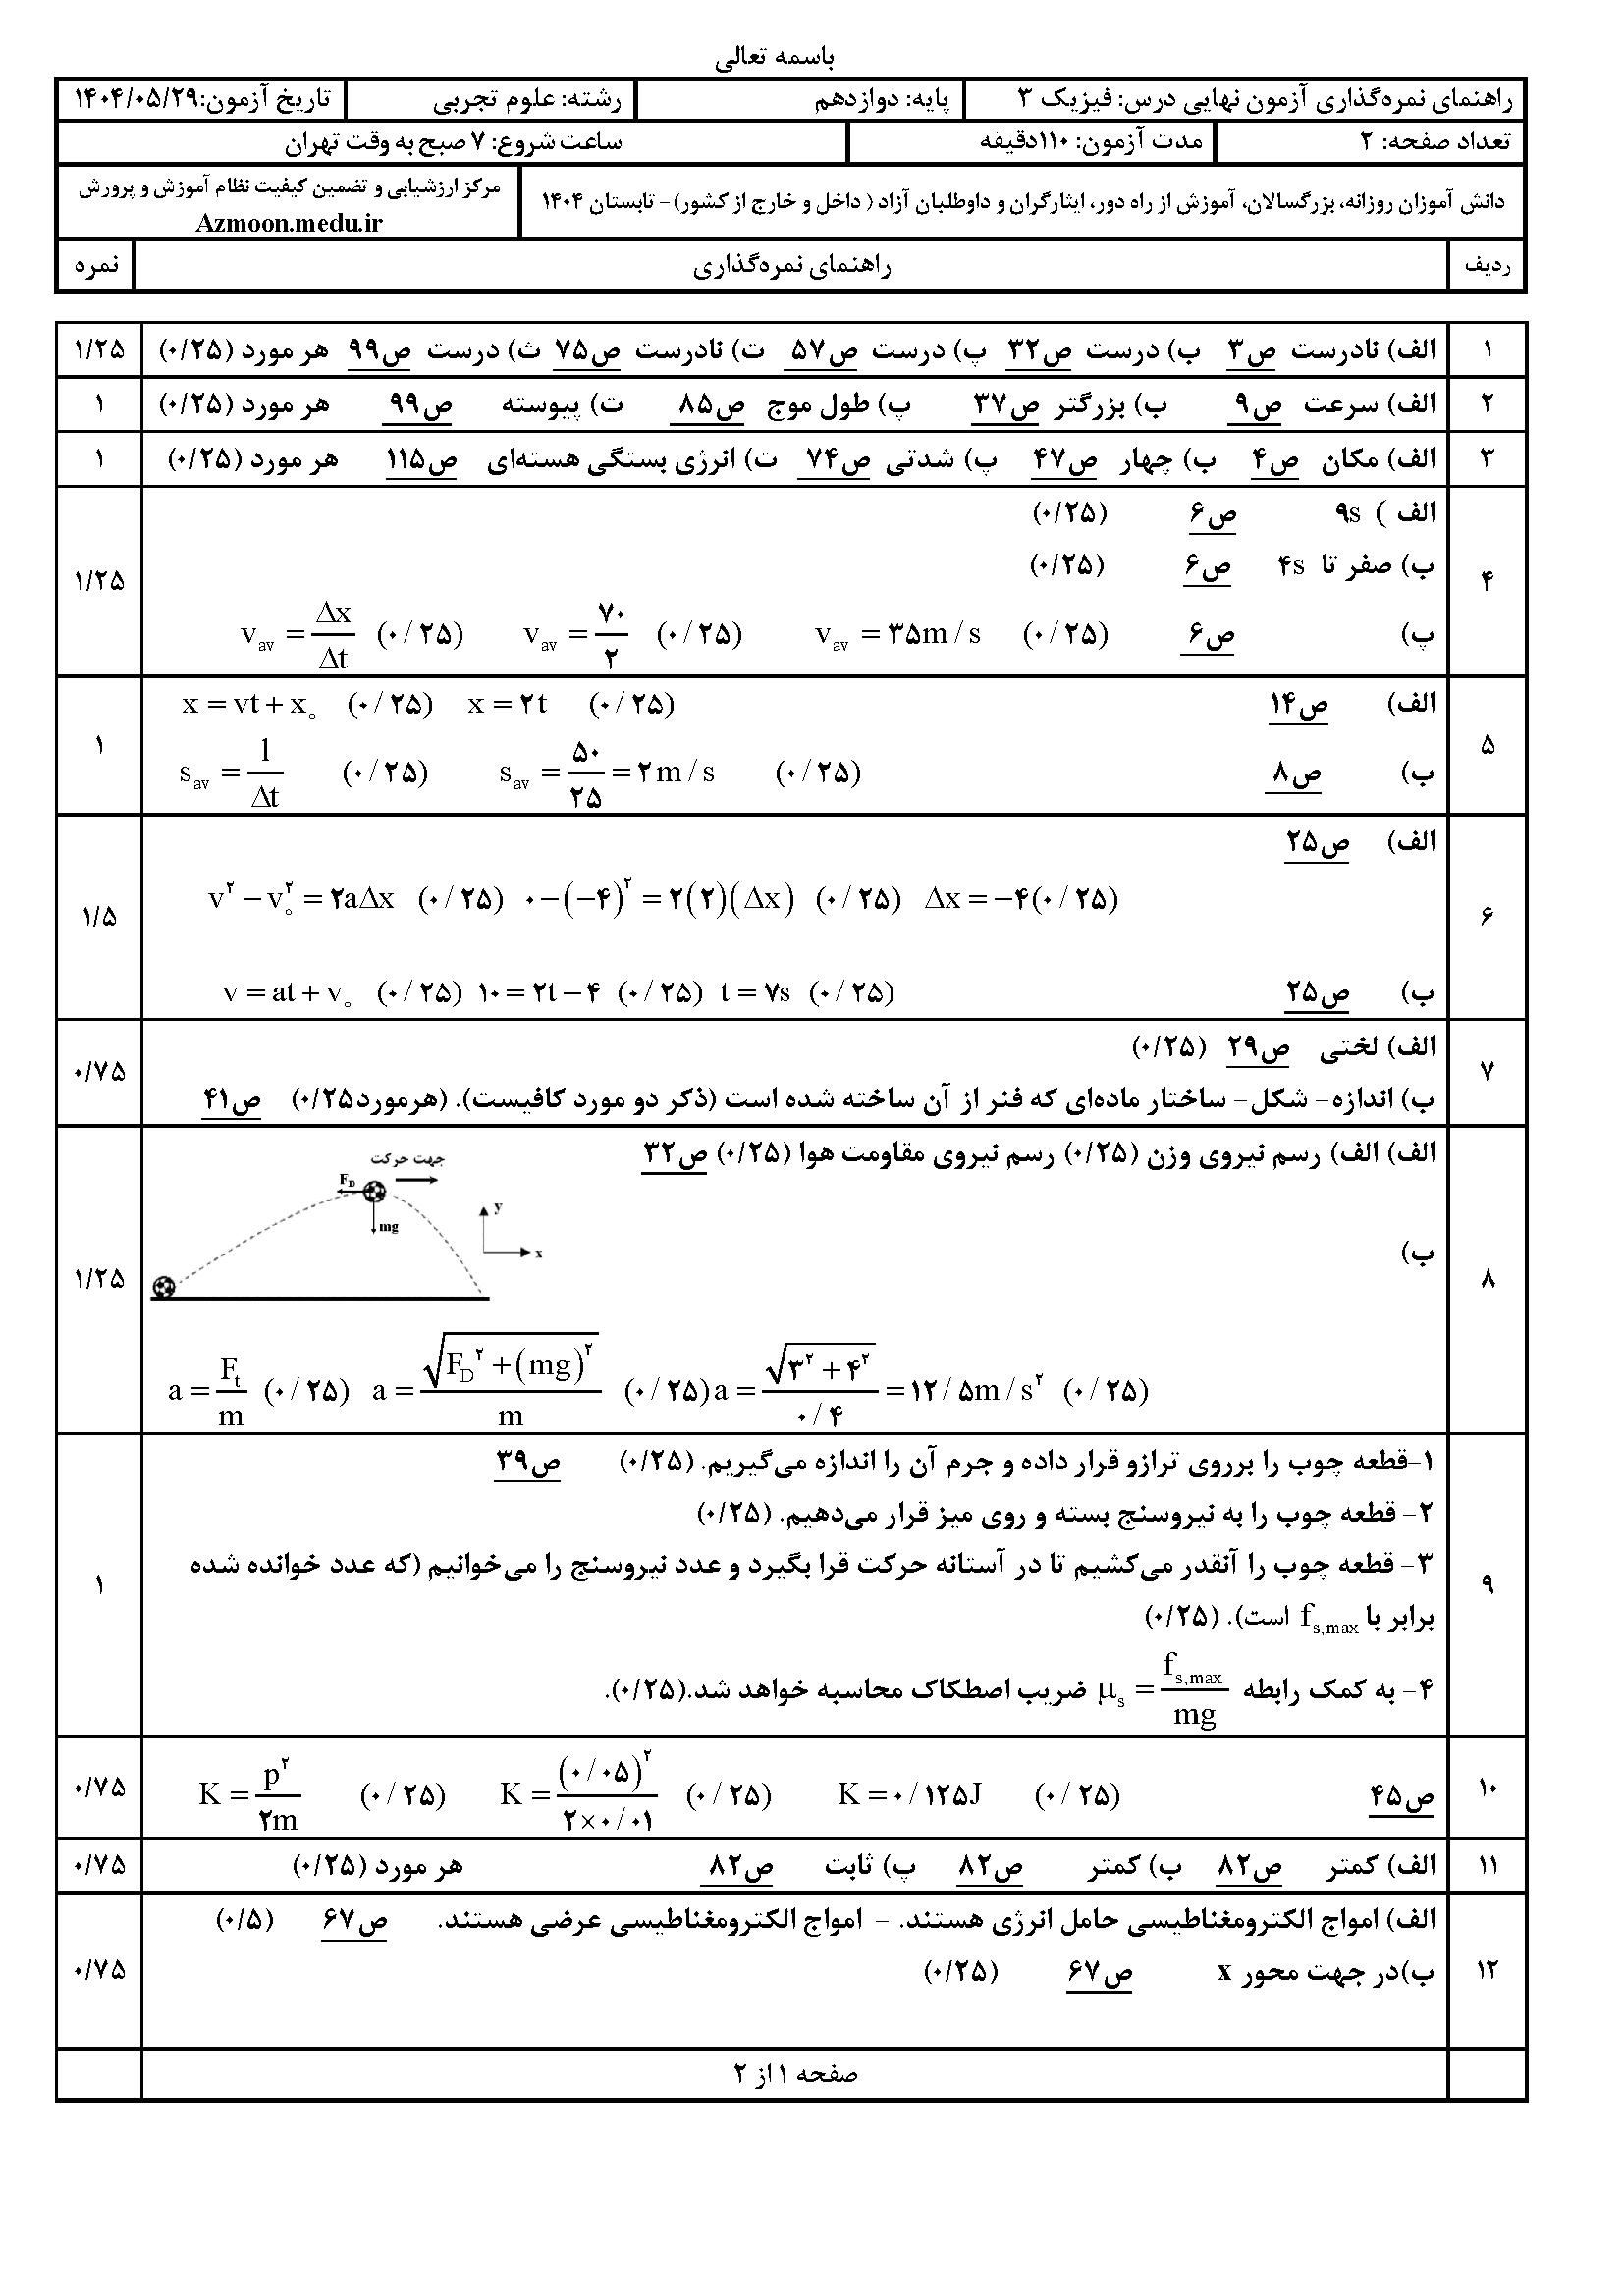 باسمه تعالی
راهنمای نمره‌گذاری آزمون نهایی درس: فیزیک ۳ پایه: دوازدهم رشته: علوم تجربی تاریخ آزمون:۱۴۰۴/۰۵/۲۹
تعداد صفحه: ۲ مدت آزمون: ۱۱۰دقیقه ساعت شروع: ۷ صبح به وقت تهران
دانش آموزان روزانه، بزرگسالان، آموزش از راه دور، ایثارگران و داوطلبان آزاد ( داخل و خارج از کشور) – تابستان ۱۴۰۴
مرکز ارزشیابی و تضمین کیفیت نظام آموزش و پرورش
Azmoon.medu.ir
ردیف راهنمای نمره‌گذاری نمره
۱ الف) نادرست ص۳ ب) درست ص۳۲ پ) درست ص۵۷ ت) نادرست ص۷۵ ث) درست ص۹۹ هر مورد (۰/۲۵) ۱/۲۵
۲ الف) سرعت ص۹ ب) بزرگتر ص۳۷ پ) طول موج ص۸۵ ت) پیوسته ص۹۹ هر مورد (۰/۲۵) ۱
۳ الف) مکان ص۴ ب) چهار ص۴۷ پ) شدتی ص۷۴ ت) انرژی بستگی هسته‌ای ص۱۱۵ هر مورد (۰/۲۵) ۱
۴ الف ) ۹s ص۶ (۰/۲۵)
ب) صفر تا ۴s ص۶ (۰/۲۵) ۱/۲۵
پ) ص۶ v_av = Δx/Δt (۰/۲۵) v_av = ۷۰/۲ (۰/۲۵) v_av = ۳۵m/s (۰/۲۵)
۵ الف) ص۱۴ x = vt + x₀ (۰/۲۵) x = ۲t (۰/۲۵) ۱
ب) ص۸ s_av = l/Δt (۰/۲۵) s_av = ۵۰/۲۵ = ۲m/s (۰/۲۵)
۶ الف) ص۲۵ ۱/۵
v^۲ − v₀^۲ = ۲aΔx (۰/۲۵) ۰−(−۴)^۲ = ۲(۲)(Δx) (۰/۲۵) Δx = −۴(۰/۲۵)
ب) ص۲۵ v = at + v₀ (۰/۲۵) ۱۰ = ۲t − ۴ (۰/۲۵) t = ۷s (۰/۲۵)
۷ الف) لختی ص۲۹ (۰/۲۵) ۰/۷۵
ب) اندازه- شکل- ساختار ماده‌ای که فنر از آن ساخته شده است (ذکر دو مورد کافیست). (هرمورد۰/۲۵) ص۴۱
۸ الف) الف) رسم نیروی وزن (۰/۲۵) رسم نیروی مقاومت هوا (۰/۲۵) ص۳۲ ۱/۲۵
جهت حرکت
F_D
mg
y
x
ب)
a = F_t/m (۰/۲۵) a = √(F_D^۲ + (mg)^۲)/m (۰/۲۵) a = √(۳^۲ + ۴^۲)/۰/۴ = ۱۲/۵m/s^۲ (۰/۲۵)
۹ ۱-قطعه چوب را برروی ترازو قرار داده و جرم آن را اندازه می‌گیریم. (۰/۲۵) ص۳۹ ۱
۲- قطعه چوب را به نیروسنج بسته و روی میز قرار می‌دهیم. (۰/۲۵)
۳- قطعه چوب را آنقدر می‌کشیم تا در آستانه حرکت قرا بگیرد و عدد نیروسنج را می‌خوانیم (که عدد خوانده شده
برابر با f_s,max است). (۰/۲۵)
۴- به کمک رابطه μ_s = f_s,max/mg ضریب اصطکاک محاسبه خواهد شد.(۰/۲۵).
۱۰ ص۴۵ K = p^۲/۲m (۰/۲۵) K = (۰/۰۵)^۲/۲×۰/۰۱ (۰/۲۵) K = ۰/۱۲۵J (۰/۲۵) ۰/۷۵
۱۱ الف) کمتر ص۸۲ ب) کمتر ص۸۲ پ) ثابت ص۸۲ هر مورد (۰/۲۵) ۰/۷۵
۱۲ الف) امواج الکترومغناطیسی حامل انرژی هستند. – امواج الکترومغناطیسی عرضی هستند. ص۶۷ (۰/۵) ۰/۷۵
ب)در جهت محور x ص۶۷ (۰/۲۵)
صفحه ۱ از ۲